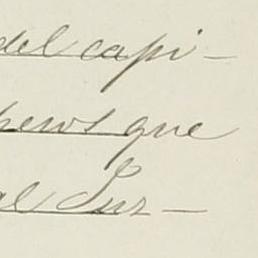 del capi-
pews que
al Sur-